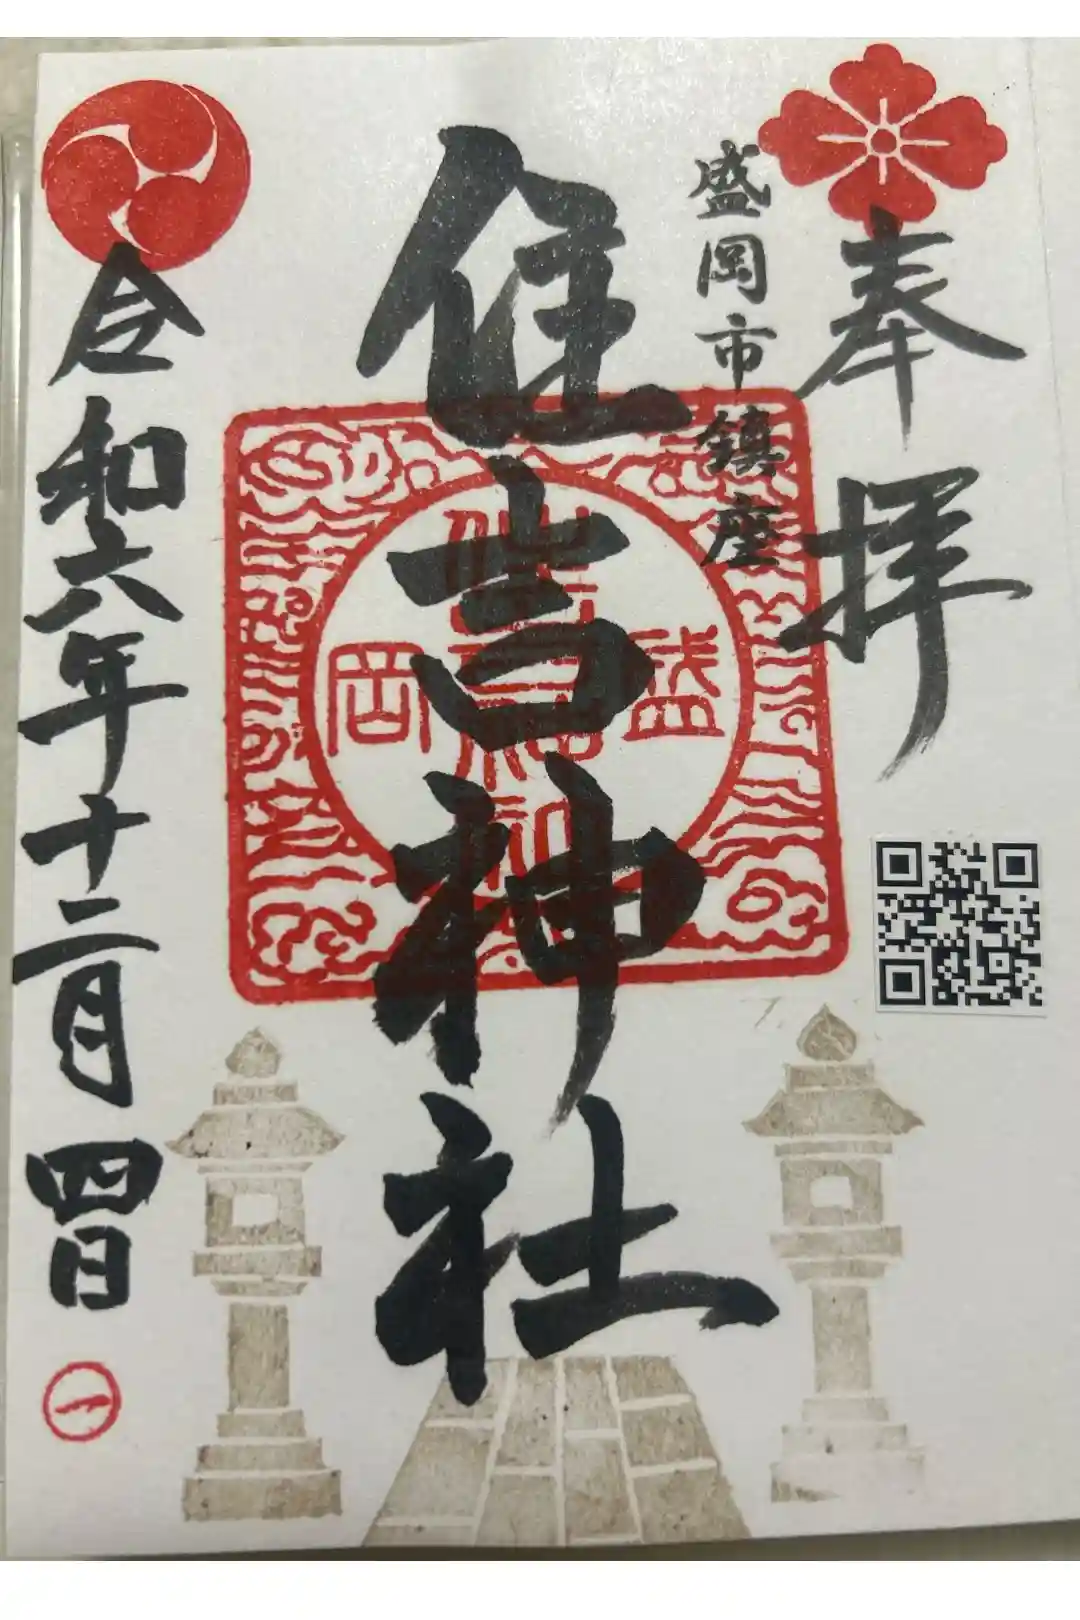 奉拝
盛岡市鎮座
住吉神社
盛岡
令和六年十二月四日
一